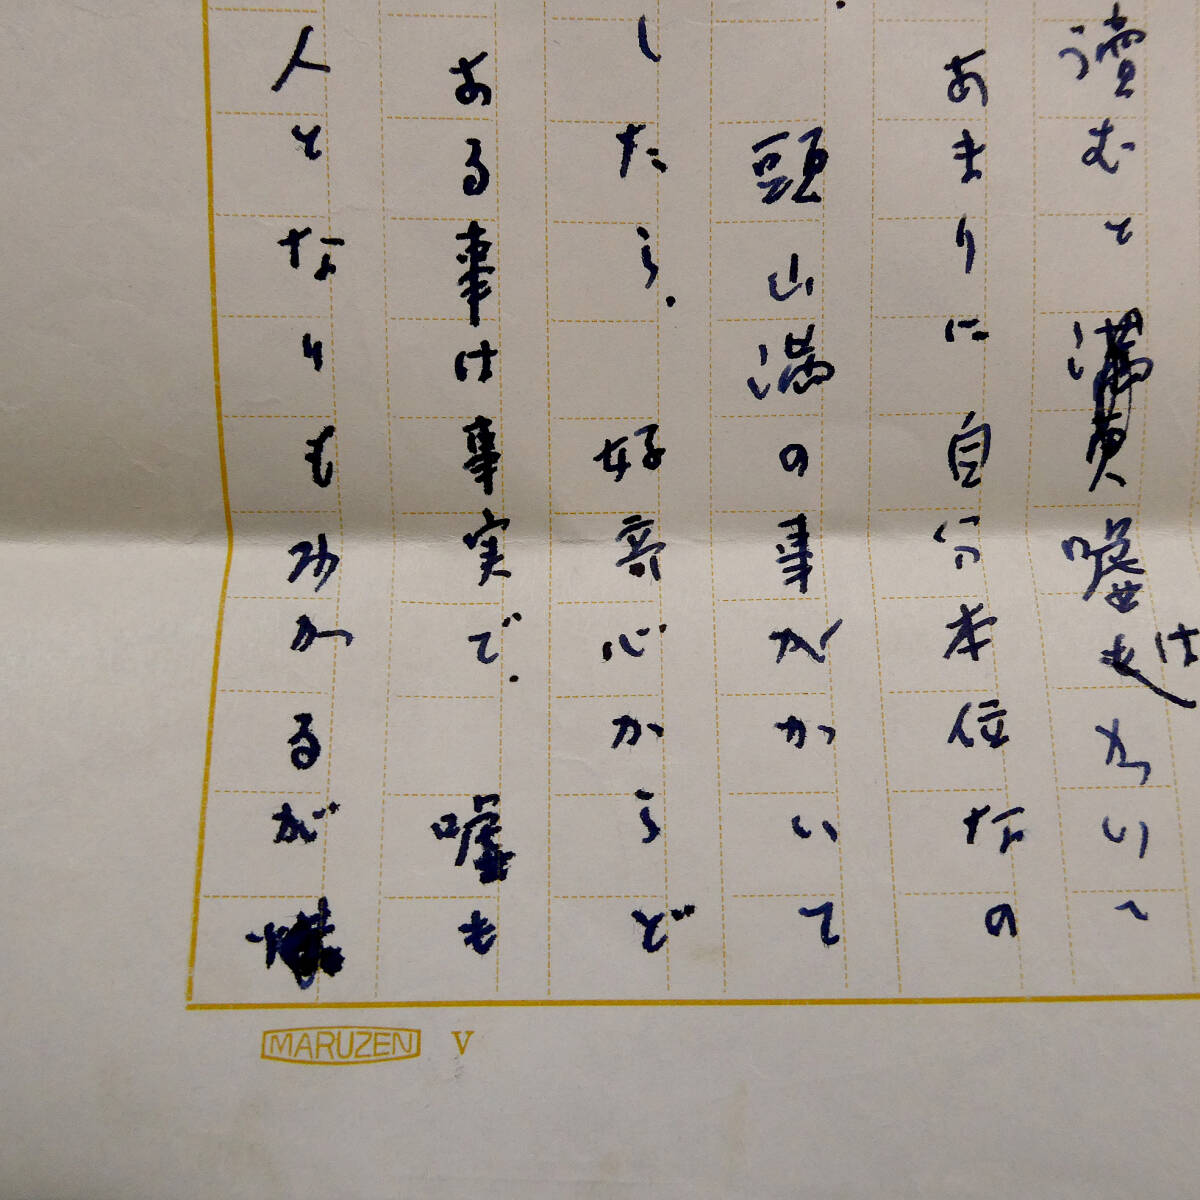 讀むと満更嘘はかいて
あまりに自分本位なの
頭山満の事がかいて
したら. 好奇心からど
ある事は事実で. 嘘も
人となりもわかるが
MARUZEN V